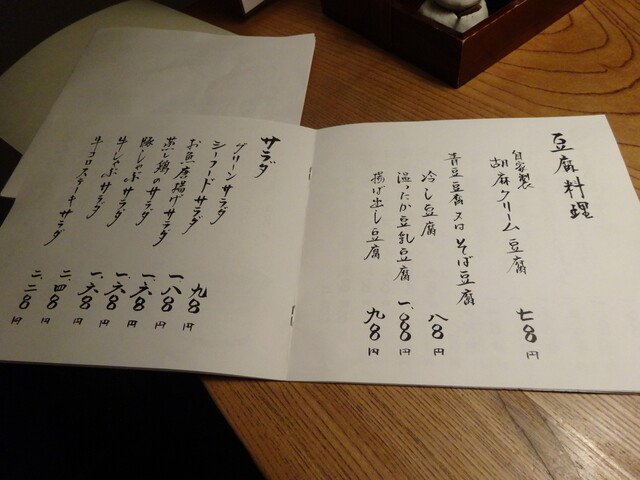 豆腐料理
自家製
胡麻クリーム豆腐 七〇〇円
青豆豆腐又はそば豆腐
冷し豆腐 八〇〇円
温ったか豆乳豆腐 一、〇〇〇円
揚げ出し豆腐 九〇〇円
サラダ
グリーンサラダ 九〇〇円
シーフードサラダ 一、八〇〇円
お魚唐揚げサラダ 一、六〇〇円
蒸し鶏のサラダ 一、六〇〇円
豚しゃぶサラダ 一、六〇〇円
牛しゃぶサラダ 二、四〇〇円
牛コロステーキサラダ 二、二〇〇円